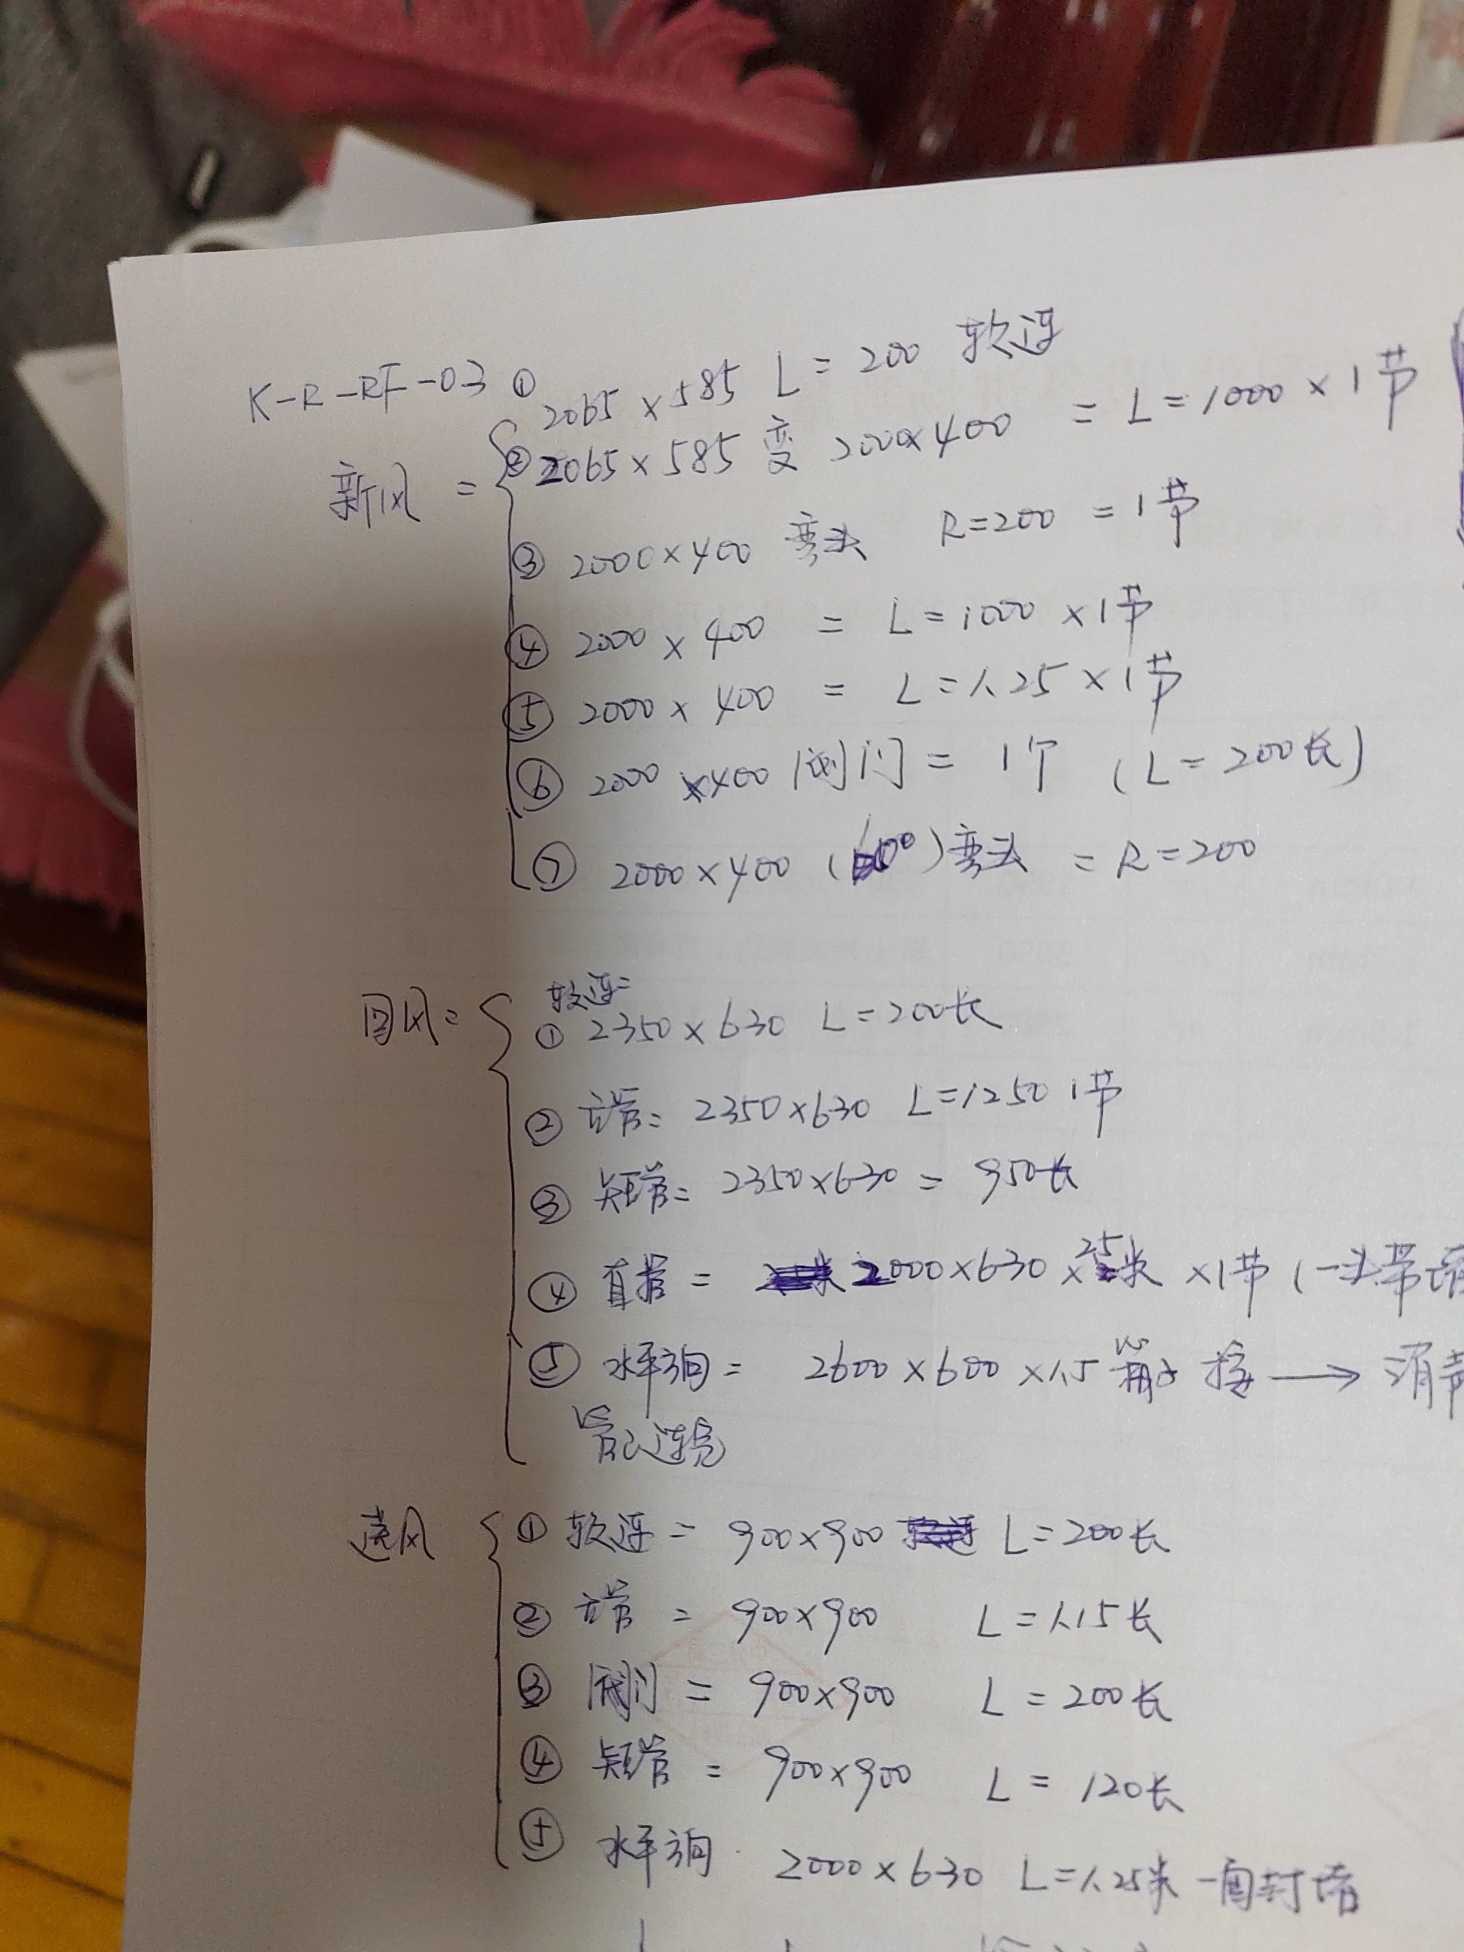 K-R-RF-03 ① 2065×585 L=200 软连
新风 = ② 2065×585 变 2000×400 = L=1000×1节
③ 2000×400 弯头 R=200 =1节
④ 2000×400 = L=1000×1节
⑤ 2000×400 = L=1.25×1节
⑥ 2000×400 阀门 = 1个 (L=200长)
⑦ 2000×400 ( 0°)弯头 = R=200
软连=
回风= ① 2350×630 L=200长
② 立管= 2350×630 L=1250 1节
③ 短管= 2350×630 = 950长
④ 直管 = 2000×630× 米 ×1节 (一头带堵
⑤ 水平向 = 2600×600×1.5 接 → 消声
管
送风 ① 软连 = 900×900 L=200长
② 立管 = 900×900 L=1.15长
③ 阀门 = 900×900 L=200长
④ 短管 = 900×900 L=120长
⑤ 水平向 2000×630 L=1.25米 一面封堵